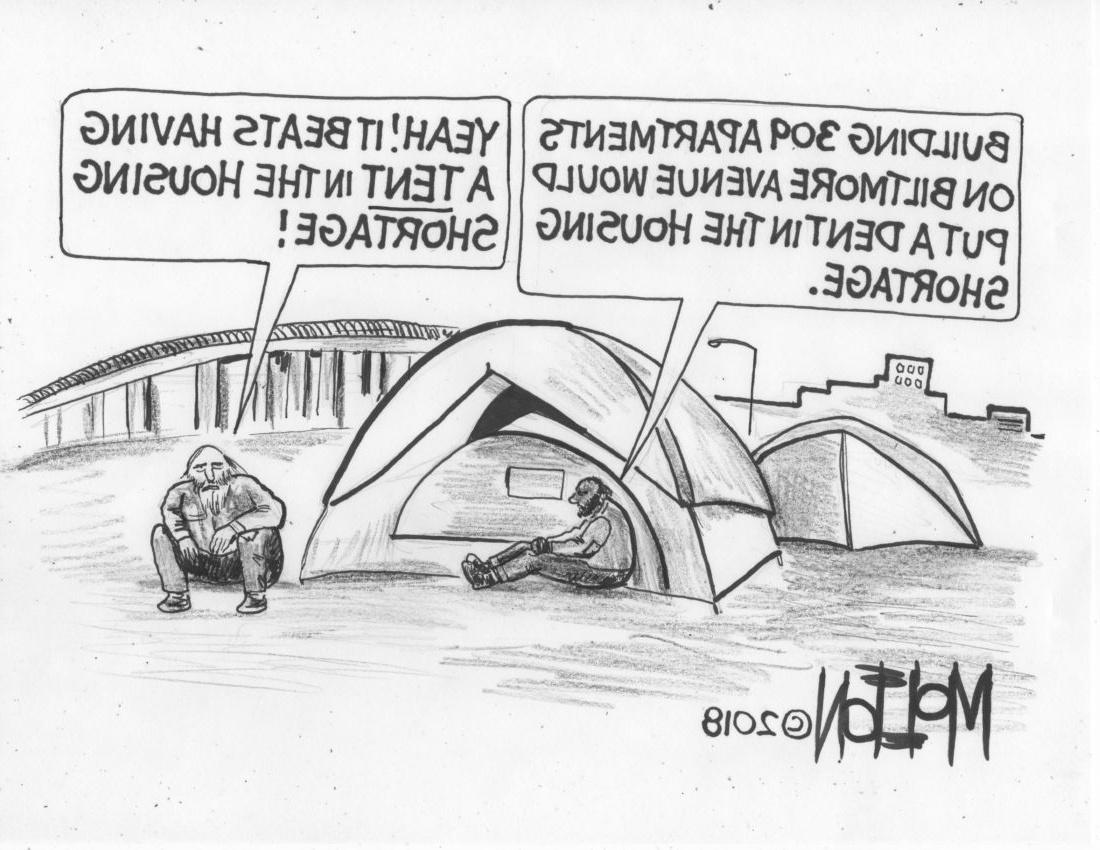 BUILDING 309 APARTMENTS
ON BILTMORE AVENUE WOULD
PUT A DENT IN THE HOUSING
SHORTAGE.
YEAH! IT BEATS HAVING
A TENT IN THE HOUSING
SHORTAGE!
MOLTON ©2018